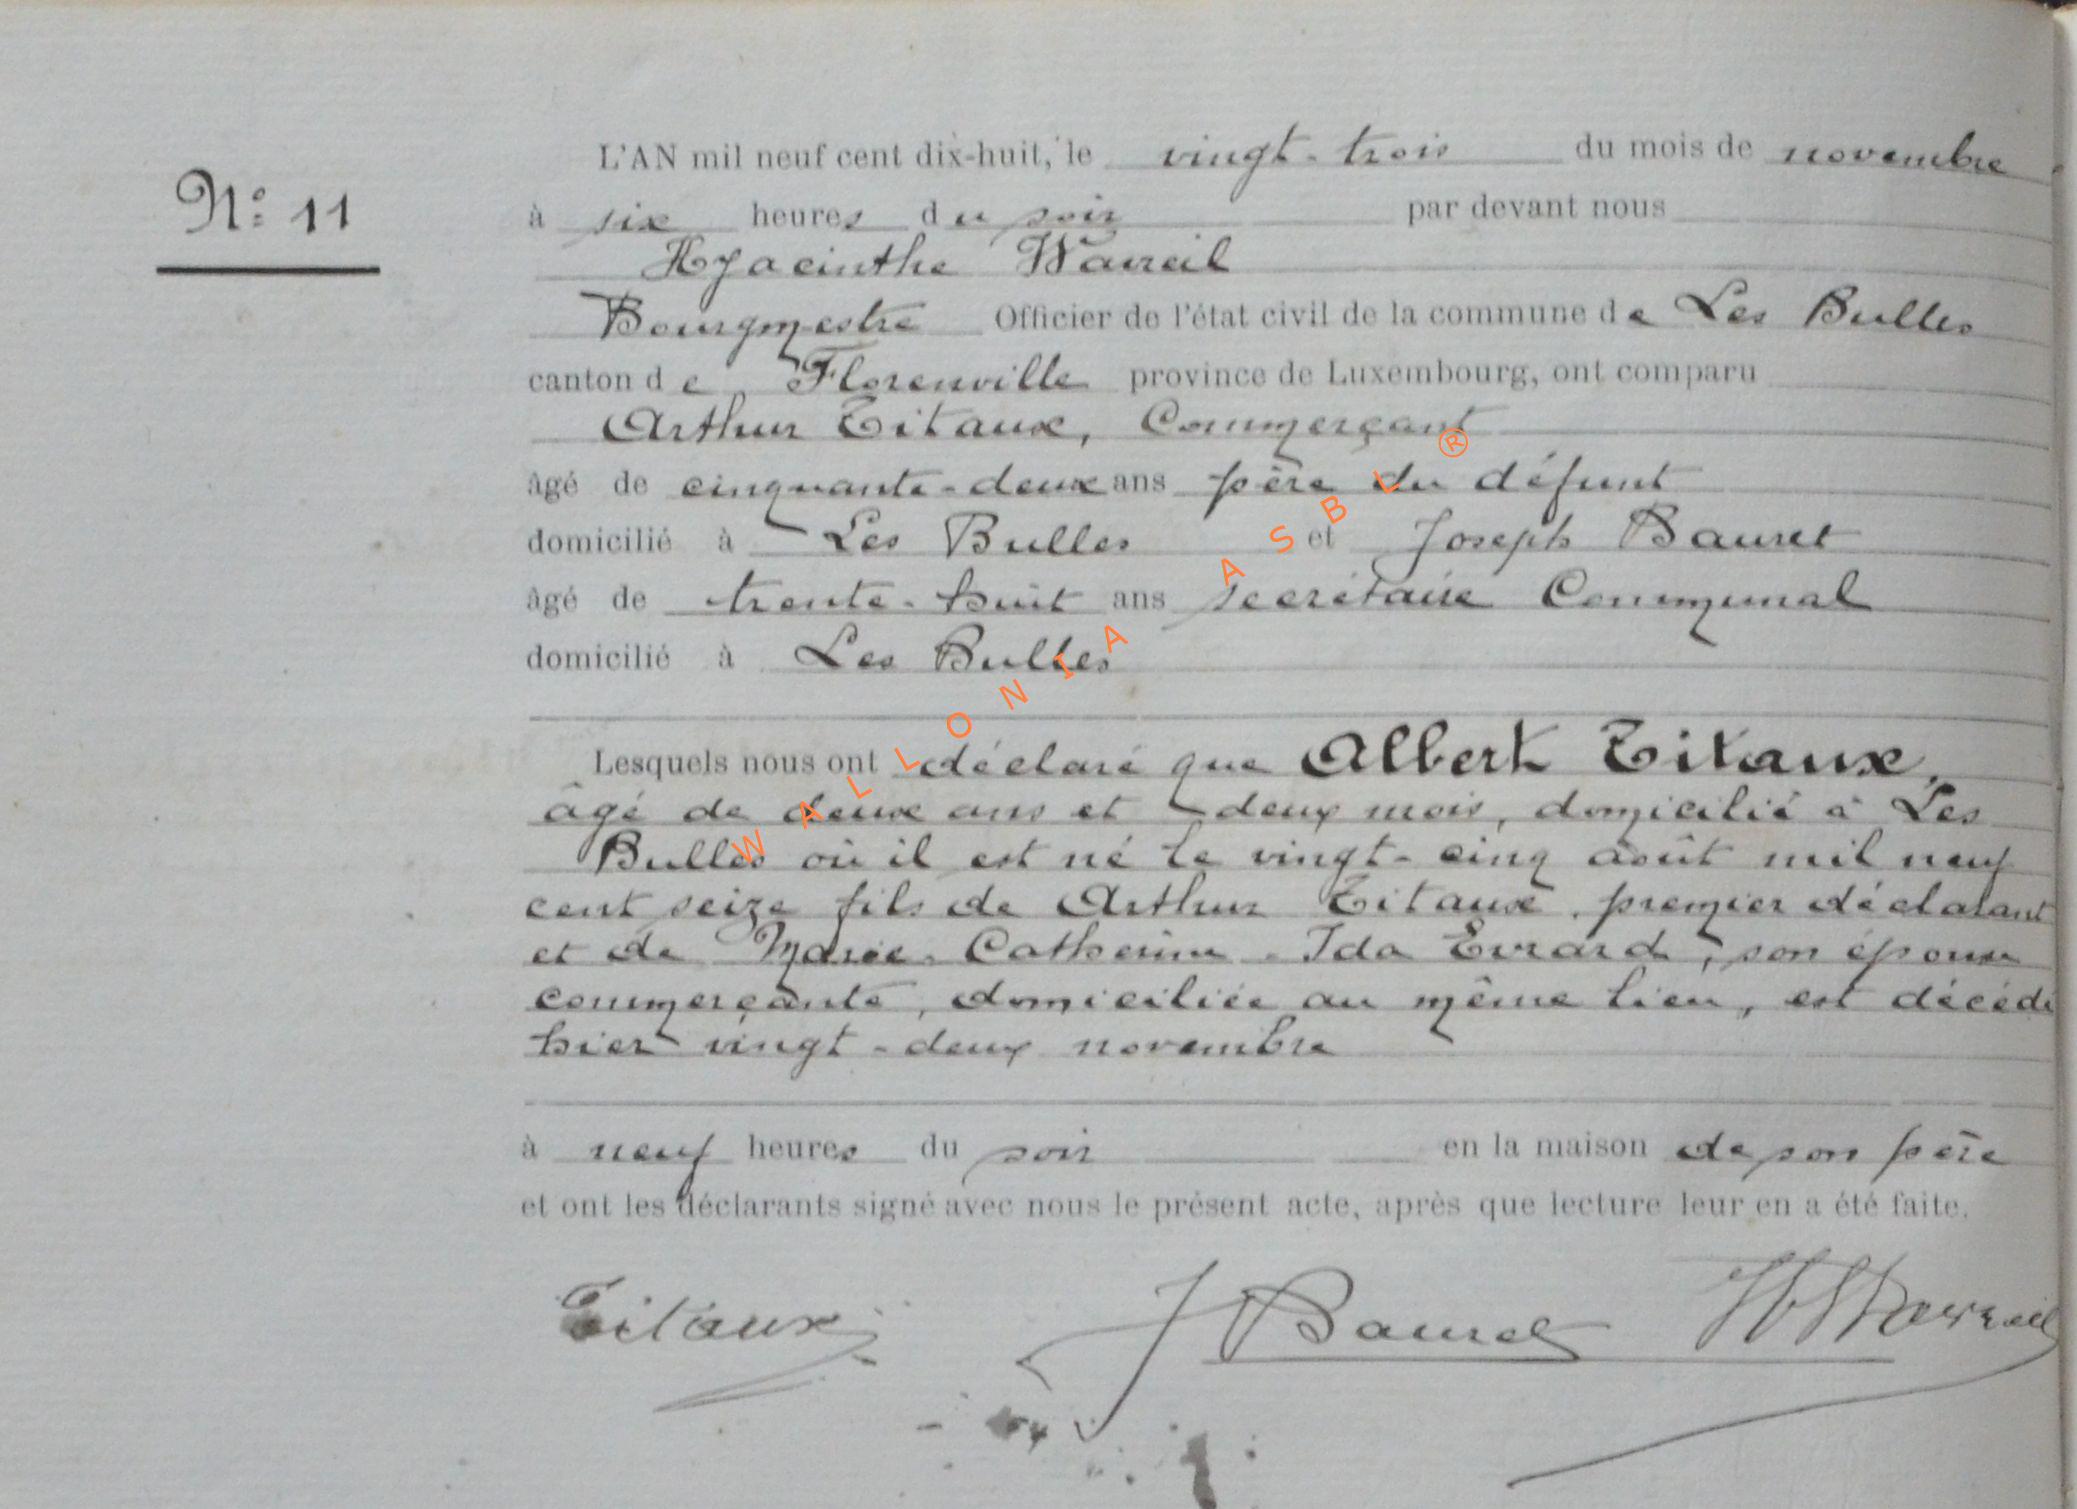 N° 11
L'AN mil neuf cent dix-huit, le vingt-trois du mois de novembre
à six heures du soir par devant nous
Hyacinthe Wavreil
Bourgmestre Officier de l'état civil de la commune de Les Bulles
canton de Florenville province de Luxembourg, ont comparu
Arthur Titaux, Commerçant
âgé de cinquante-deux ans père du défunt
domicilié à Les Bulles et Joseph Bauret
âgé de trente-huit ans secrétaire Communal
domicilié à Les Bulles
Lesquels nous ont déclaré que Albert Titaux,
âgé de deux ans et deux mois, domicilié à Les
Bulles où il est né le vingt-cinq août mil neuf
cent seize fils de Arthur Titaux, premier déclarant
et de Marie-Catherine-Ida Evrard, son épouse
commerçante, domiciliée au même lieu, est décédé
hier vingt-deux novembre
à neuf heures du soir en la maison de son père
et ont les déclarants signé avec nous le présent acte, après que lecture leur en a été faite.
Titaux J Bauret H Wavreil
WALLONIA ASBL ®